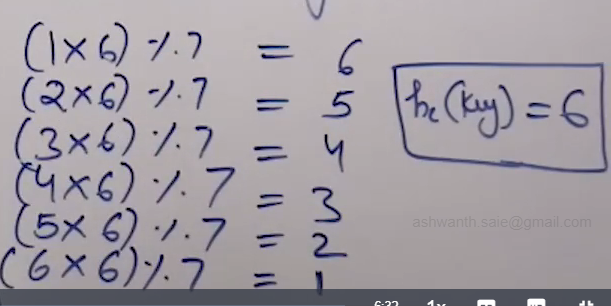 (1×6) % 7 = 6
(2×6) % 7 = 5
(3×6) % 7 = 4
(4×6) % 7 = 3
(5×6) % 7 = 2
(6×6) % 7 = 1
h₂(key) = 6
ashwanth.saie@gmail.com
6:32 1x